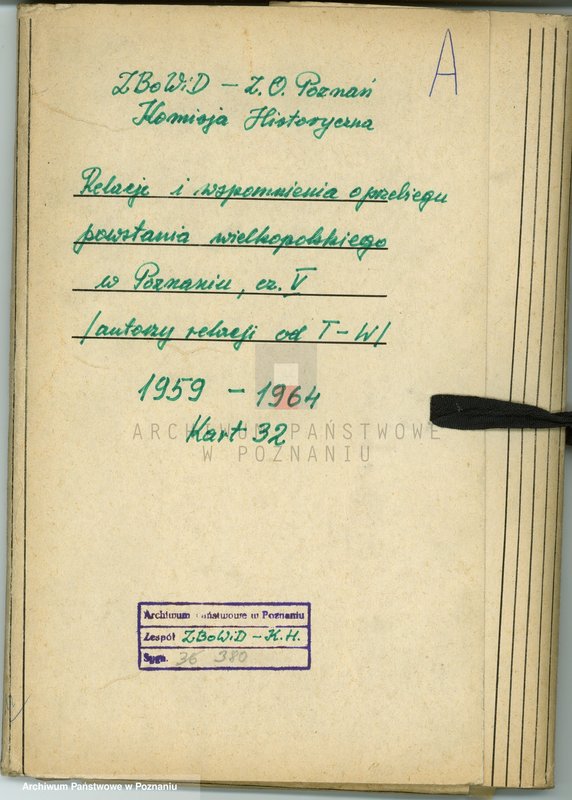 A
ZBoWiD – Z.O. Poznań
Komisja Historyczna
Relacje i wspomnienia o przebiegu
powstania wielkopolskiego
w Poznaniu, cz. V
/autorzy relacji od T-W/
1959 – 1964
Kart 32
ARCHIWUM PAŃSTWOWE
W POZNANIU
Archiwum Państwowe w Poznaniu
Zespół ZBoWiD – K.H.
Sygn. 36 380
Archiwum Państwowe w Poznaniu